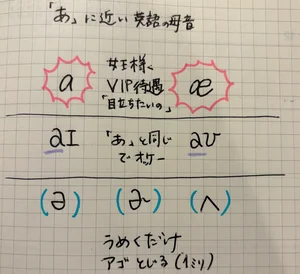 「あ」に近い英語の母音
女王様、
a VIP待遇 æ
「目立ちたいの」
aI 「あ」と同じ aʊ
でオッケー
(ə) (ɚ) (ʌ)
うめくだけ
アゴとじる(1ミリ)